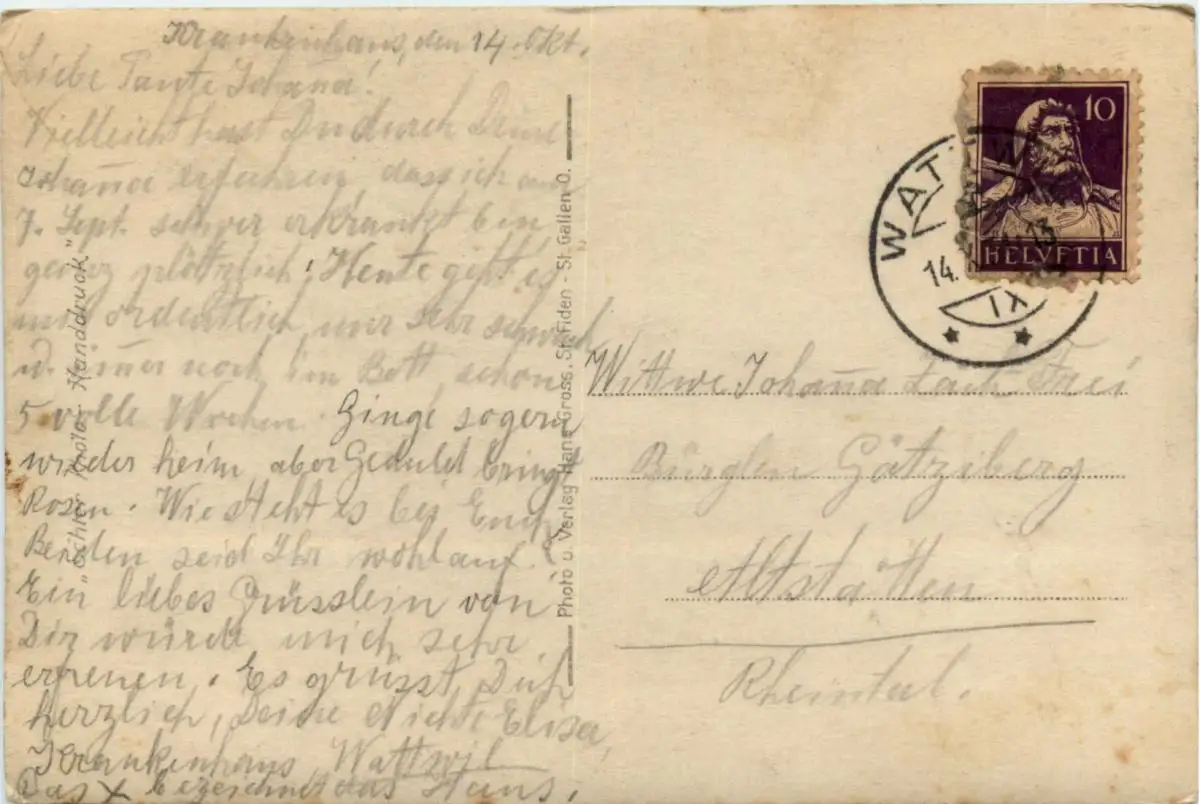 Krankenhaus, den 14. Okt.
Liebe Tante Johan̄a!
Vielleicht hast Du durch Deine
Johan̄a erfahren, dass ich am
7. Sept. schwer erkrankt bin
ganz plötzlich! Heute geht es
mir ordentlich, nur sehr schwach
u. im̄er noch im Bett, schon
5 volle Wochen. Ginge so gern
wieder heim, aber Geduld bringt
Rosen. Wie steht es bei Euch
Beiden seid Ihr wohlauf?
Ein liebes Grüsslein von
Dir würde mich sehr
erfreuen. Es grüsst Dich
herzlich, Deine Nichte Elisa,
Krankenhaus Wattwil
Das X bezeichnet das Haus.
"Echter Photo-Handdruck"
Photo u. Verlag Hans Gross, St. Fiden - St. Gallen O.
10
HELVETIA
WATTW
14.
13
IX
Wittwe Johan̄a Frei
Bürglen Götziberg
Altstätten
Rheintal.